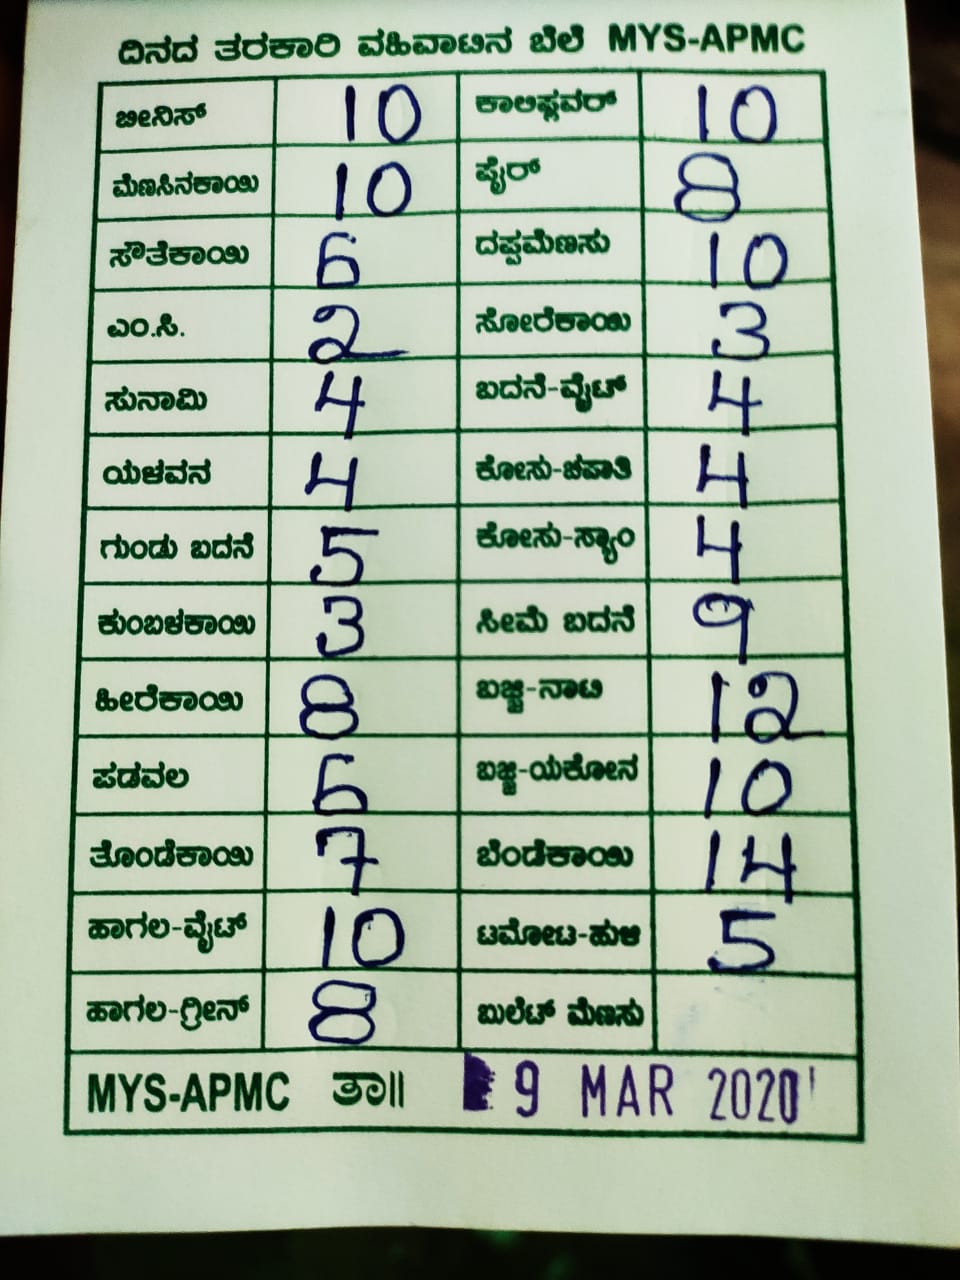 ದಿನದ ತರಕಾರಿ ವಹಿವಾಟಿನ ಬೆಲೆ MYS-APMC
ಬೀನಿಸ್ 10 ಕಾಲಿಫ್ಲವರ್ 10
ಮೆಣಸಿನಕಾಯಿ 10 ಪೈರ್ 8
ಸೌತೆಕಾಯಿ 6 ದಪ್ಪಮೆಣಸು 10
ಎಂ.ಸಿ. 2 ಸೋರೆಕಾಯಿ 3
ಸುನಾಮಿ 4 ಬದನೆ-ವೈಟ್ 4
ಯಳವನ 4 ಕೋಸು-ಚಪಾತಿ 4
ಗುಂಡು ಬದನೆ 5 ಕೋಸು-ಸ್ಯಾಂ 4
ಕುಂಬಳಕಾಯಿ 3 ಸೀಮೆ ಬದನೆ 9
ಹೀರೆಕಾಯಿ 8 ಬಜ್ಜಿ-ನಾಟಿ 12
ಪಡವಲ 6 ಬಜ್ಜಿ-ಯಕೋನ 10
ತೊಂಡೆಕಾಯಿ 7 ಬೆಂಡೆಕಾಯಿ 14
ಹಾಗಲ-ವೈಟ್ 10 ಟಮೋಟ-ಹುಳಿ 5
ಹಾಗಲ-ಗ್ರೀನ್ 8 ಬುಲೆಟ್ ಮೆಣಸು
MYS-APMC ತಾ॥ 9 MAR 2020